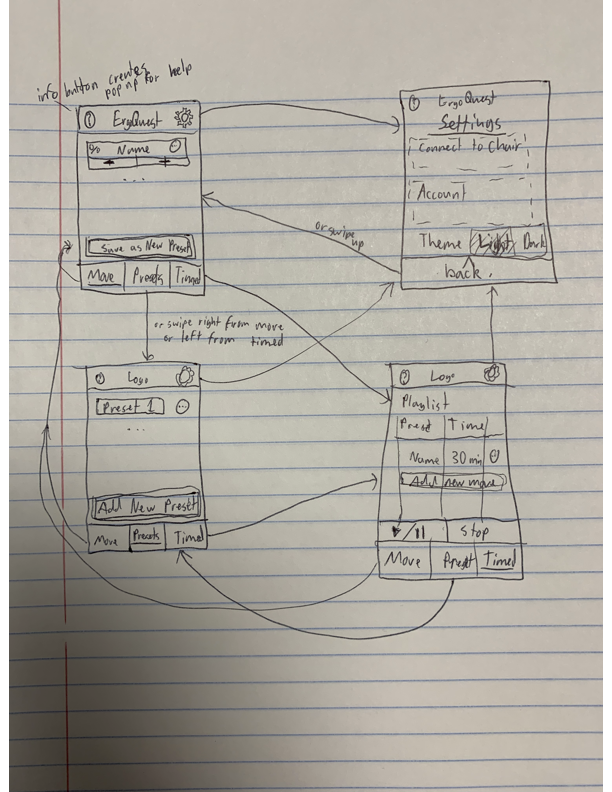 info button creates
popup for help
ErgoQuest
Name
- +
...
Save as New Preset
Move Presets Timed
ErgoQuest
Settings
Connect to Chair
Account
Theme Light Dark
back.
or swipe
up
or swipe right from move
or left from timed
Logo
Preset 1
...
Add New Preset
Move Presets Timed
Logo
Playlist
Preset Time
Name 30 min
Add new move
Stop
Move Preset Timed